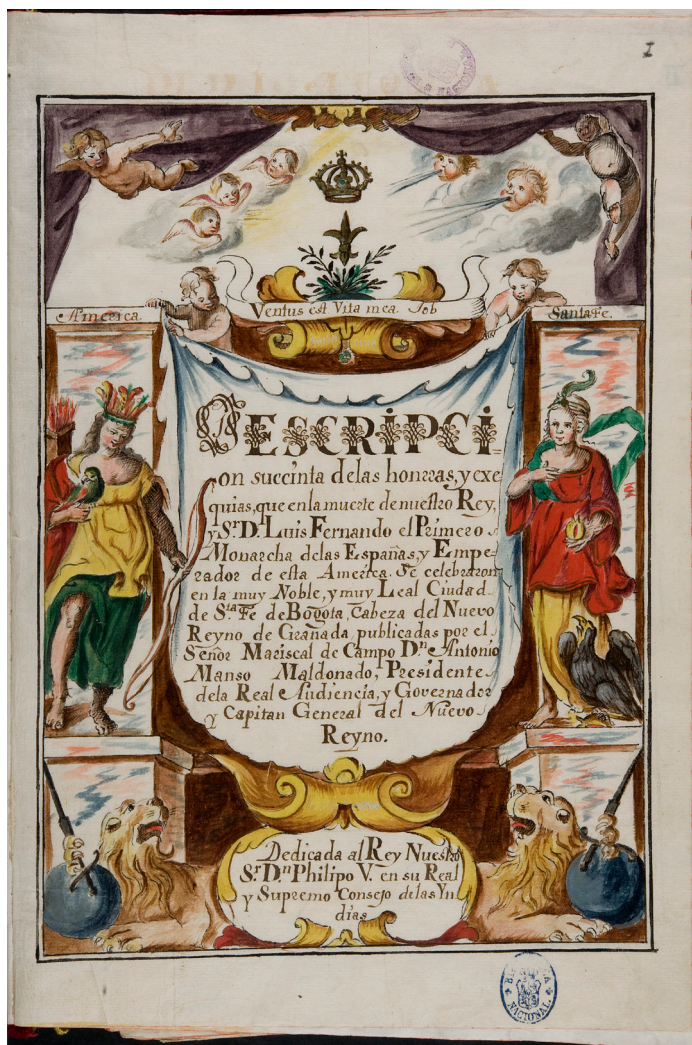 1
America.
Ventus est Vita mea. Job
Santa Fe.
DESCRIPCI-
on succinta delas honrras, y exe
quias, que en la muerte de nuestro Rey,
y Sr. D. Luis Fernando el Primero
Monarcha delas Españas, y Empe-
rador de esta America. Se celebraron
en la muy Noble, y muy Leal Ciudad
de Sta. Fe de Bogota, Cabeza del Nuevo
Reyno de Granada, publicadas por el
Señor Mariscal de Campo Dn. Antonio
Manso Maldonado, Presidente
dela Real Audiencia, y Governador
y Capitan General del Nuevo
Reyno.
Dedicada al Rey Nuestro
Sr. Dn Philipo V. en su Real
y Supremo Consejo delas Yn
dias
NACIONAL